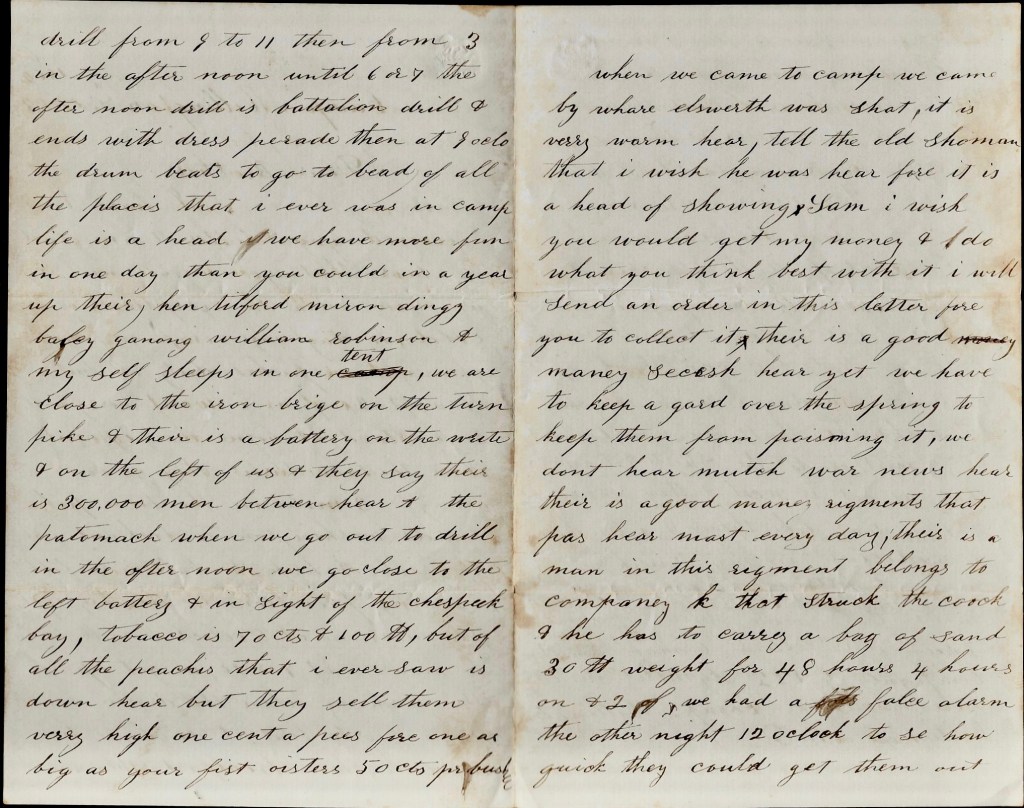 drill from 9 to 11 then from 3
in the after noon until 6 or 7 the
after noon drill is battalion drill &
ends with dress perade then at 9 oclo
the drum beats to go to bead, of all
the placis that i ever was in camp
life is a head we have more fun
in one day than you could in a year
up their, hen tilford miron dingy
baley ganong william robinson &
my self sleeps in one tent, we are
close to the iron brige on the turn
pike & their is a battery on the write
& on the left of us & they say their
is 300,000 men betwen hear & the
patomach when we go out to drill
in the after noon we go close to the
left battery & in sight of the chespeek
bay, tobacco is 70 cts & 100 lb, but of
all the peachis that i ever saw is
down hear but they sell them
verry high one cent a pees fore one as
big as your fist oisters 50 cts pr bush
when we came to camp we came
by whare elswerth was shat, it is
verry warm hear, tell the old shoman
that i wish he was hear fore it is
a head of showing, Sam i wish
you would get my money & do
what you think best with it i will
send an order in this latter fore
you to collect it, their is a good
maney secesh hear yet we have
to keep a gard over the spring to
keep them from poisoning it, we
dont hear mutch war news hear
their is a good maney rigments that
pas hear mast every day, their is a
man in this rigment belongs to
companey k that struck the coock
& he has to carrey a bag of sand
30 lb weight for 48 hours 4 hours
on & 2 of, we had a falce alarm
the other night 12 oclock to se how
quick they could get them out